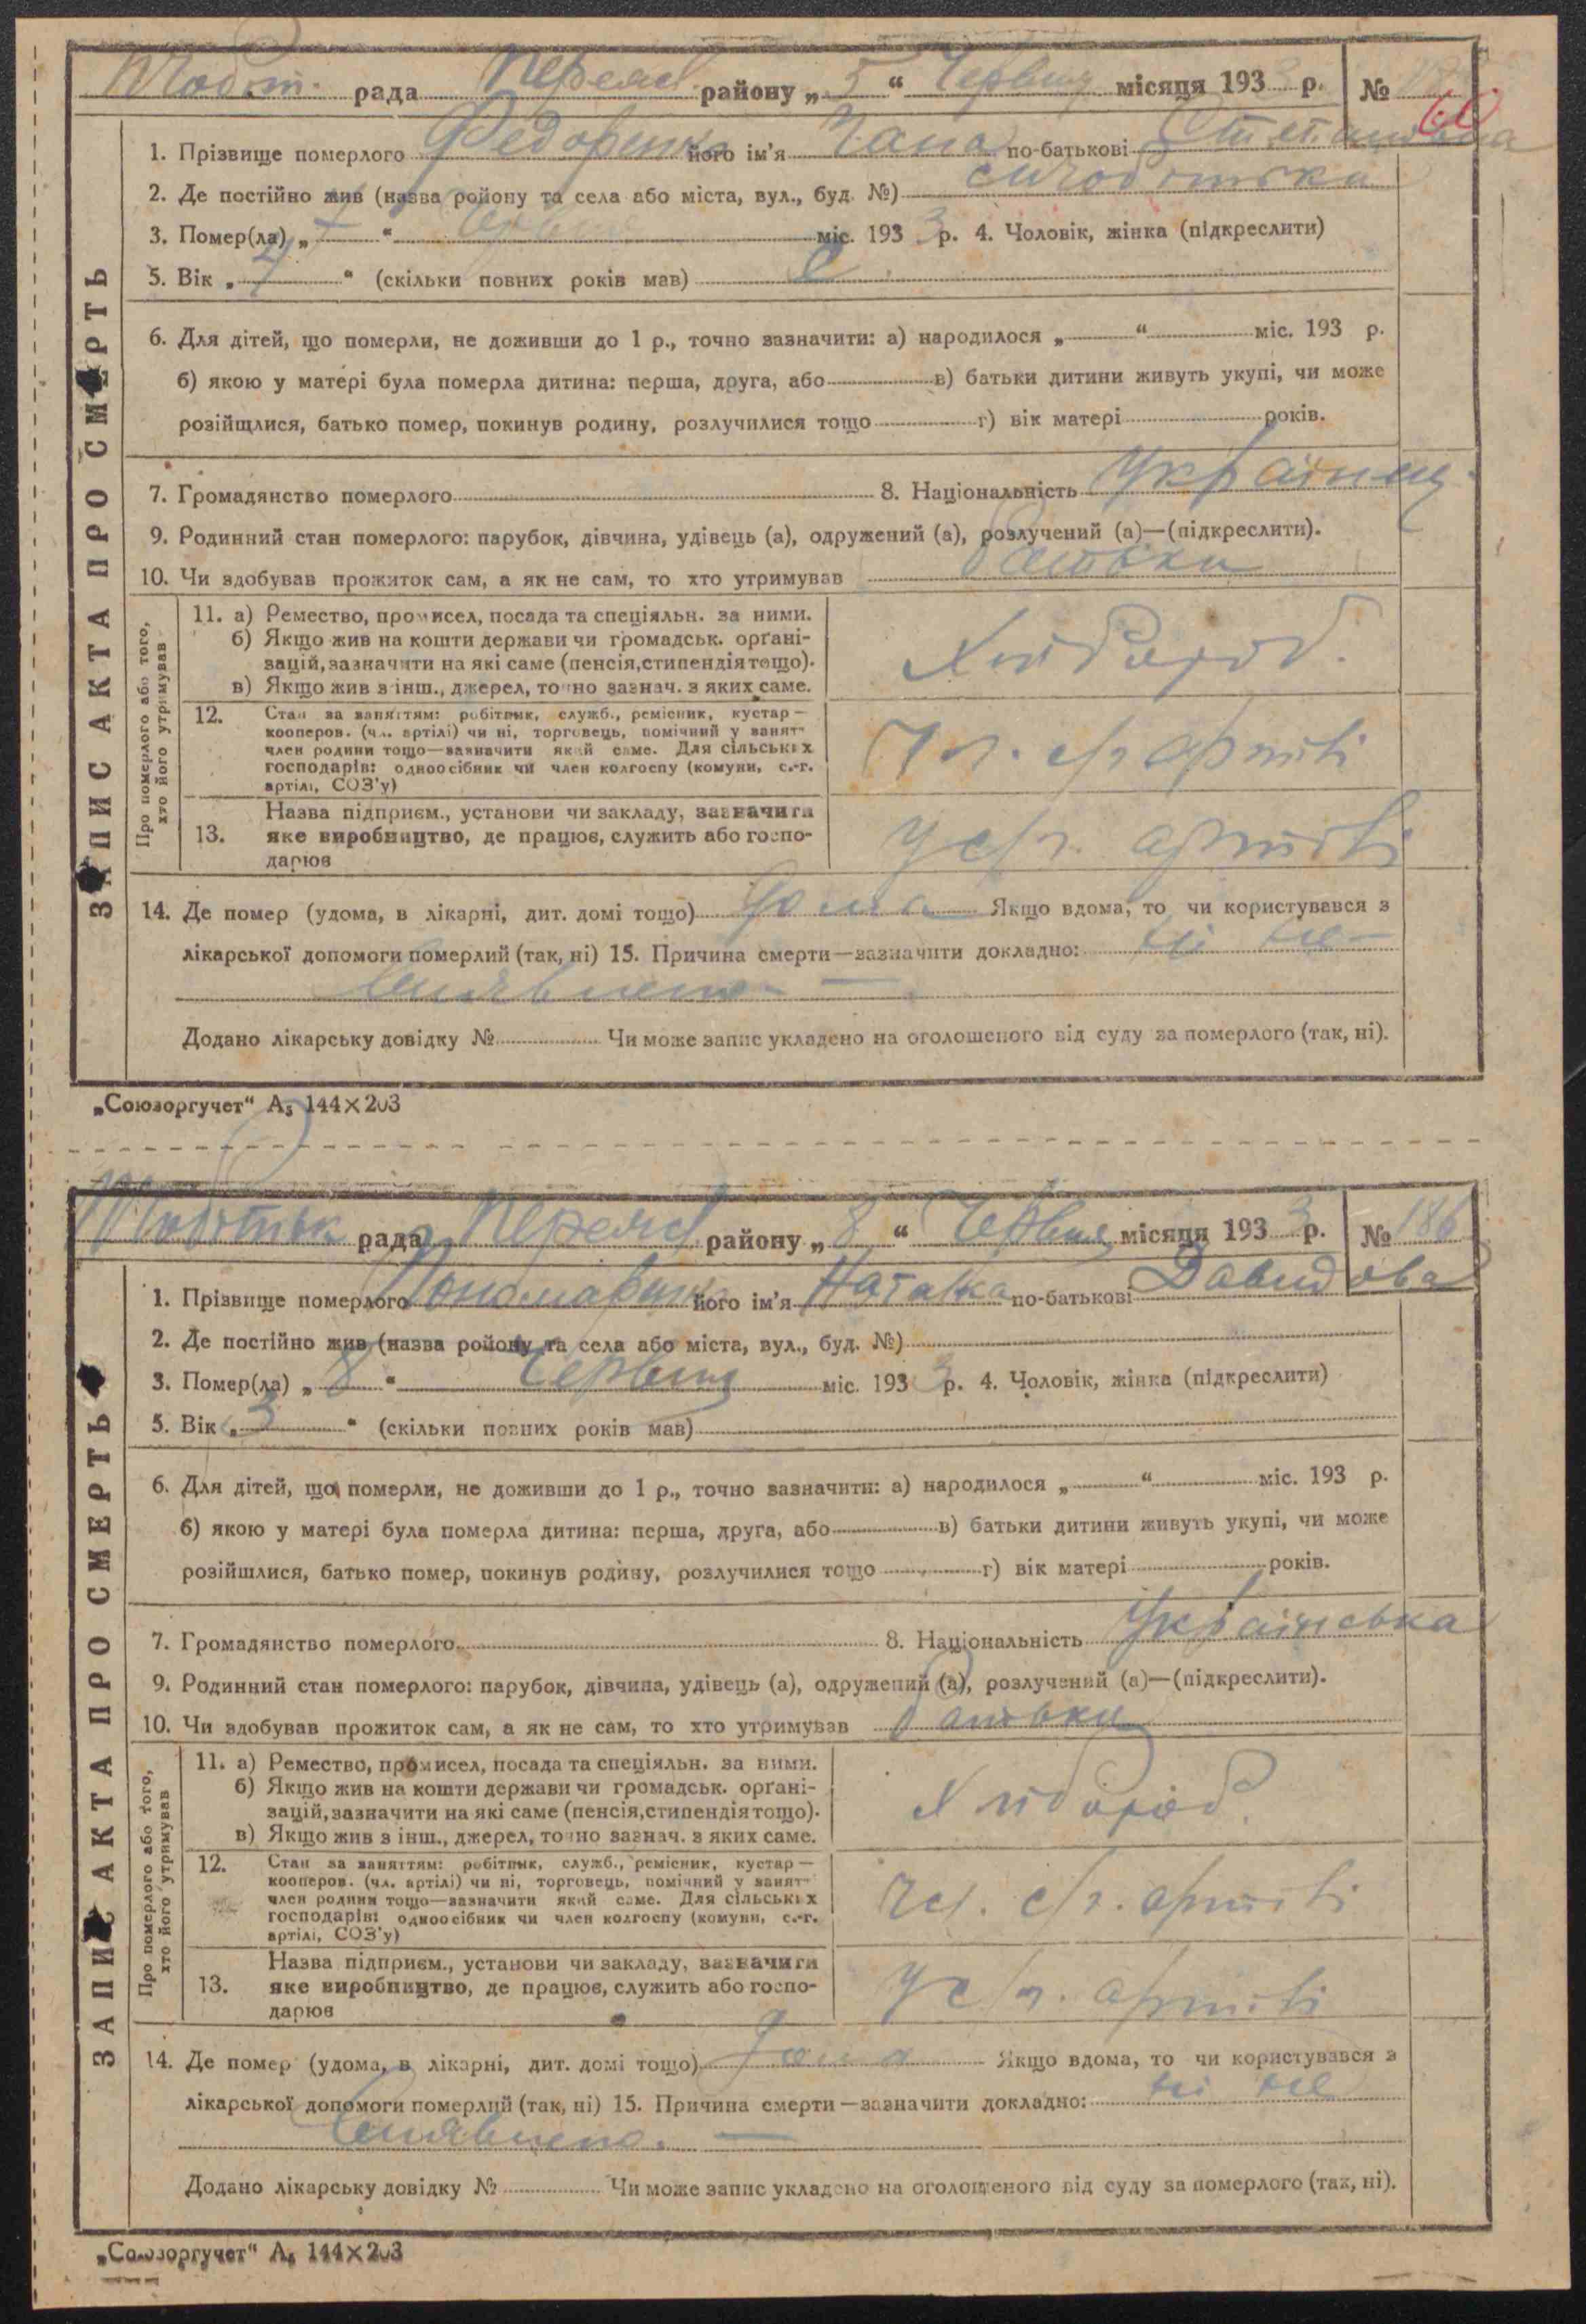 рада Переяс. району „ 5 “ Червня місяця 193 3 р. №
60
1. Прізвище померлого Федоренко його ім'я по-батькові Степановна
2. Де постійно жив (назва району та села або міста, вул., буд. №)
3. Помер(ла) „ “ міс. 193 3 р. 4. Чоловік, жінка (підкреслити)
5. Вік „ “ (скільки повних років мав)
6. Для дітей, що померли, не доживши до 1 р., точно зазначити: а) народилося „ “ міс. 193 р.
б) якою у матері була померла дитина: перша, друга, або в) батьки дитини живуть укупі, чи може
розійшлися, батько помер, покинув родину, розлучилися тощо г) вік матері років.
7. Громадянство померлого 8. Національність Українц.
9. Родинний стан померлого: парубок, дівчина, удівець (а), одружений (а), розлучений (а)—(підкреслити).
10. Чи здобував прожиток сам, а як не сам, то хто утримував батьки
ЗАПИС АКТА ПРО СМЕРТЬ
Про померлого або того, хто його утримував
11. а) Ремество, промисел, посада та спеціяльн. за ними.
б) Якщо жив на кошти держави чи громадськ. орґані-
зацій, зазначити на які саме (пенсія, стипендія тощо).
в) Якщо жив з інш., джерел, точно зазнач. з яких саме.
Хлібороб.
12. Стан за заняттям: робітник, служб., ремісник, кустар—
кооперов. (чл. артілі) чи ні, торговець, помічний у занят-
член родини тощо—зазначити який саме. Для сільських
господарів: одноосібник чи член колгоспу (комуни, с.-г.
артілі, СОЗ'у)
Чл. с/г артілі
13. Назва підприєм., установи чи закладу, зазначити
яке виробництво, де працює, служить або госпо-
дарює
У с/г. артілі
14. Де помер (удома, в лікарні, дит. домі тощо) Дома Якщо вдома, то чи користувався з
лікарської допомоги померлий (так, ні) 15. Причина смерти—зазначити докладно: ні не-
виявлено —
Додано лікарську довідку № Чи може запис укладено на оголошеного від суду за померлого (так, ні).
„Союзоргучет“ А5 144×203
рада Переяс району „ 8 “ Червня місяця 193 3 р. № 186
1. Прізвище померлого його ім'я Наталка по-батькові Давидова
2. Де постійно жив (назва району та села або міста, вул., буд. №)
3. Помер(ла) „ 8 “ Червня міс. 193 3 р. 4. Чоловік, жінка (підкреслити)
5. Вік „ 3 “ (скільки повних років мав)
6. Для дітей, що померли, не доживши до 1 р., точно зазначити: а) народилося „ “ міс. 193 р.
б) якою у матері була померла дитина: перша, друга, або в) батьки дитини живуть укупі, чи може
розійшлися, батько помер, покинув родину, розлучилися тощо г) вік матері років.
7. Громадянство померлого 8. Національність Українська
9. Родинний стан померлого: парубок, дівчина, удівець (а), одружений (а), розлучений (а)—(підкреслити).
10. Чи здобував прожиток сам, а як не сам, то хто утримував батьки
ЗАПИС АКТА ПРО СМЕРТЬ
Про померлого або того, хто його утримував
11. а) Ремество, промисел, посада та спеціяльн. за ними.
б) Якщо жив на кошти держави чи громадськ. орґані-
зацій, зазначити на які саме (пенсія, стипендія тощо).
в) Якщо жив з інш., джерел, точно зазнач. з яких саме.
Хлібороб.
12. Стан за заняттям: робітник, служб., ремісник, кустар—
кооперов. (чл. артілі) чи ні, торговець, помічний у занят-
член родини тощо—зазначити який саме. Для сільських
господарів: одноосібник чи член колгоспу (комуни, с.-г.
артілі, СОЗ'у)
Чл. с/г. артілі
13. Назва підприєм., установи чи закладу, зазначити
яке виробництво, де працює, служить або госпо-
дарює
У с/г. артілі
14. Де помер (удома, в лікарні, дит. домі тощо) Дома Якщо вдома, то чи користувався з
лікарської допомоги померлий (так, ні) 15. Причина смерти—зазначити докладно: ні не
виявлено. —
Додано лікарську довідку № Чи може запис укладено на оголошеного від суду за померлого (так, ні).
„Союзоргучет“ А5 144×203